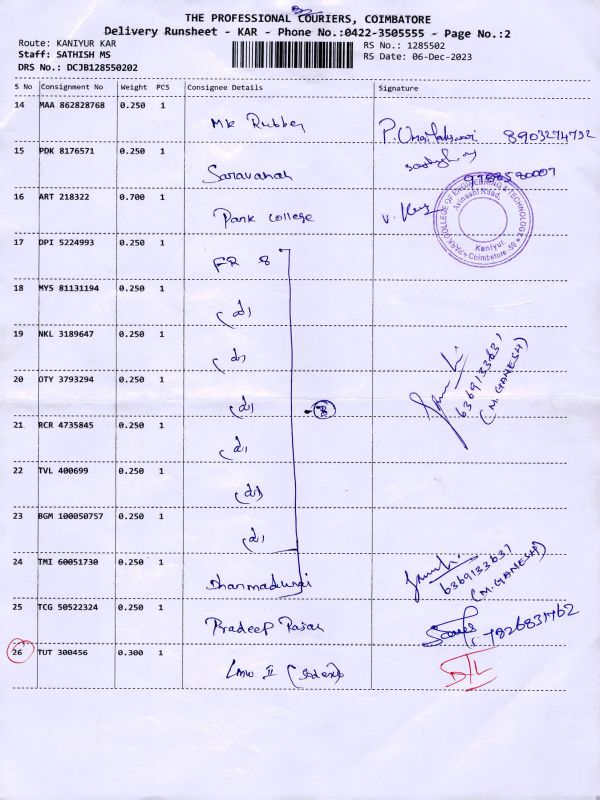 THE PROFESSIONAL COURIERS, COIMBATORE
Delivery Runsheet - KAR - Phone No.:0422-3505555 - Page No.:2
Route: KANIYUR KAR
RS No.: 1285502
Staff: SATHISH MS
RS Date: 06-Dec-2023
DRS No.: DCJB128550202
S No Consignment No Weight PCS Consignee Details Signature
14 MAA 862828768 0.250 1 Mk Rubber 8903274792
15 PDK 8176571 0.250 1 Saravanah 9788580007
16 ART 218322 0.700 1 Park college
COLLEGE OF ENGINEERING & TECHNOLOGY
Avinashi Road,
Kaniyur,
Coimbatore - 59
17 DPI 5224993 0.250 1 FR 8
18 MYS 81131194 0.250 1 (d)
19 NKL 3189647 0.250 1 (d)
20 OTY 3793294 0.250 1 (d) 8
6369133631
(M. GANESH)
21 RCR 4735845 0.250 1 (d)
22 TVL 400699 0.250 1 (d)
23 BGM 100050757 0.250 1 (d)
24 TMI 60051730 0.250 1 Dharmadurai
6369133631
(M. GANESH)
25 TCG 50522324 0.250 1 Pradeep Rajan 7826831762
26 TUT 300456 0.300 1 LMW II